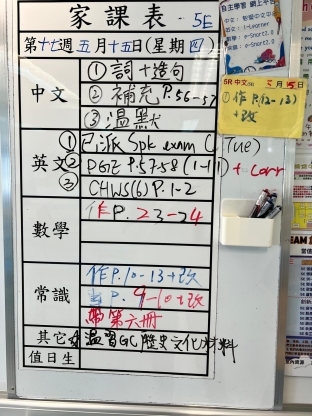 家課表 - 5E
第十七週五月十五日(星期四)
中文
① 詞+造句
② 補充 P.56-57
③ 温默
英文
① 已派 Spk exam (Tue)
② DGE P.57-58 (1-11) + corr
③ CHWS(6) P.1-2
數學
作 P.23-24
常識
作 P.10-13+改
P. 9-10+改
帶第六冊
其它
温習GC歷史文化材料
值日生
自主學習 網上平台
5R 中文
作 P.(12-13)
+改